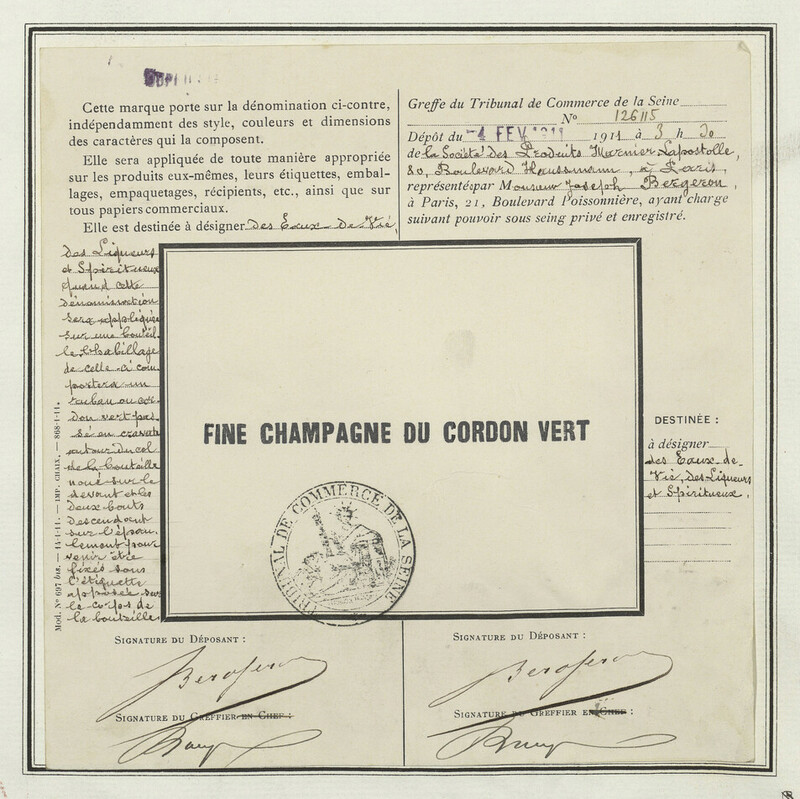 Cette marque porte sur la dénomination ci-contre,
indépendamment des style, couleurs et dimensions
des caractères qui la composent.
Elle sera appliquée de toute manière appropriée
sur les produits eux-mêmes, leurs étiquettes, embal-
lages, empaquetages, récipients, etc., ainsi que sur
tous papiers commerciaux.
Elle est destinée à désigner des Eaux-de-Vie,
des Liqueurs
et Spiritueux
quand cette
dénomination
sera appliquée
sur une bouteil-
le l'habillage
de celle-ci com-
portera un
ruban ou cor-
don vert pas-
sé en cravate
autour du col
de la bouteille
noué sur le
devant et les
deux bouts
descendant
sur l'épau-
lement pour
venir être
fixés sous
l'étiquette
apposée sur
le corps de
la bouteille
Mod. N° 697 bis. — 14-1-11. — IMP. CHAIX. — 868-1-11.
Greffe du Tribunal de Commerce de la Seine
N° 126115
Dépôt du -4 FEV 1911 1911 à 3 h 30
de la Société des Produits Marnier Lapostolle,
80, Boulevard Haussmann, à Paris,
représentée par Monsieur Joseph Bergeron,
à Paris, 21, Boulevard Poissonnière, ayant charge
suivant pouvoir sous seing privé et enregistré.
FINE CHAMPAGNE DU CORDON VERT
TRIBUNAL DE COMMERCE DE LA SEINE
DESTINÉE :
à désigner
des Eaux-de-
Vie, des Liqueurs
et Spiritueux.
SIGNATURE DU DÉPOSANT :
Bergeron
SIGNATURE DU GREFFIER EN CHEF :
SIGNATURE DU DÉPOSANT :
Bergeron
SIGNATURE DU GREFFIER EN CHEF :